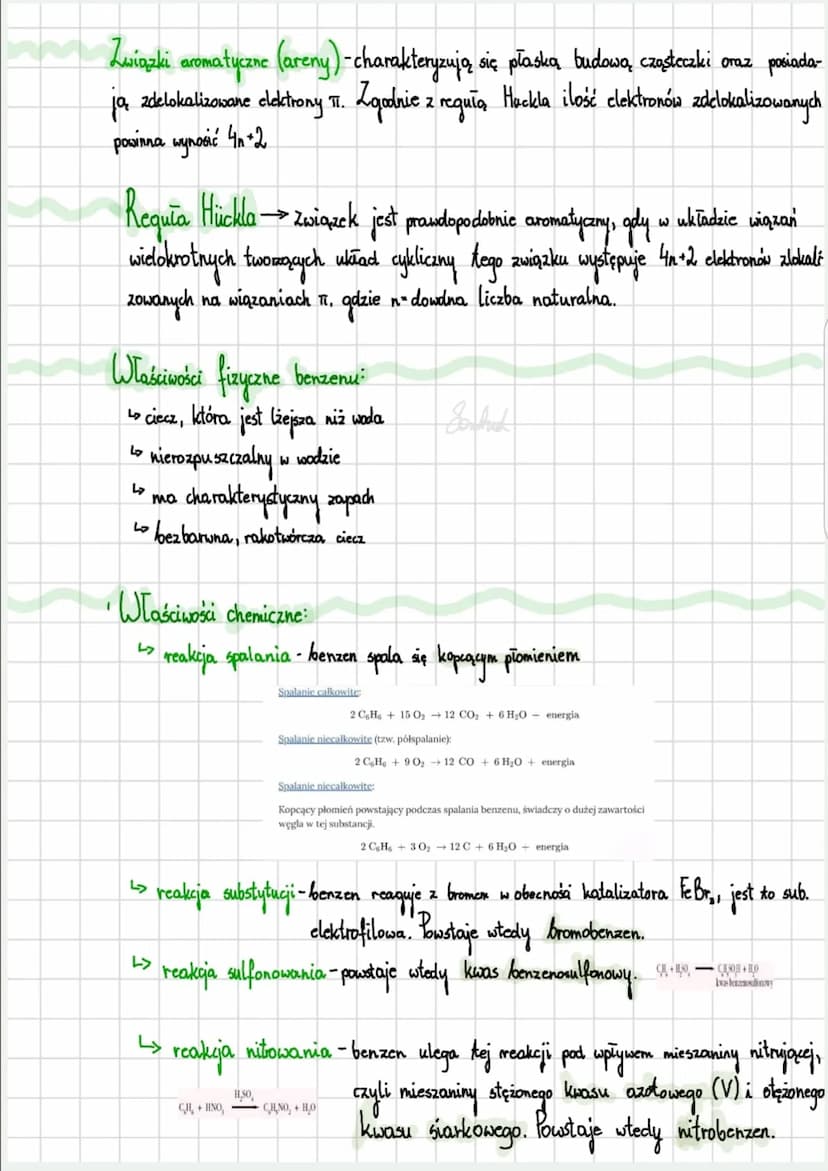 Związki aromatyczne (areny) - charakteryzują się płaską budową cząsteczki oraz posiada-
ją zdelokalizowane elektrony π. Zgodnie z regułą Huckla ilość elektronów zdelokalizowanych
powinna wynosić 4n+2
Reguła Hückla → związek jest prawdopodobnie aromatyczny, gdy w układzie wiązań
wielokrotnych tworzących układ cykliczny tego związku występuje 4n+2 elektronów zlokali
zowanych na wiązaniach π, gdzie n= dowolna liczba naturalna.
Właściwości fizyczne benzenu:
↳ ciecz, która jest lżejsza niż woda
↳ nierozpuszczalny w wodzie
↳ ma charakterystyczny zapach
↳ bezbarwna, rakotwórcza ciecz
Właściwości chemiczne:
↳ reakcja spalania - benzen spala się kopcącym płomieniem
Spalanie całkowite:
2 C₆H₆ + 15 O₂ → 12 CO₂ + 6 H₂O + energia
Spalanie niecałkowite (tzw. półspalanie):
2 C₆H₆ + 9 O₂ → 12 CO + 6 H₂O + energia
Spalanie niecałkowite:
Kopcący płomień powstający podczas spalania benzenu, świadczy o dużej zawartości
węgla w tej substancji.
2 C₆H₆ + 3 O₂ → 12 C + 6 H₂O + energia
↳ reakcja substytucji - benzen reaguje z bromem w obecności katalizatora FeBr₃, jest to sub.
elektrofilowa. Powstaje wtedy bromobenzen.
↳ reakcja sulfonowania - powstaje wtedy kwas benzenosulfonowy.
C₆H₆ + H₂SO₄ → C₆H₅SO₃H + H₂O
kwas benzenosulfonowy
↳ reakcja nitrowania - benzen ulega tej reakcji pod wpływem mieszaniny nitrującej,
czyli mieszaniny stężonego kwasu azotowego (V) i stężonego
kwasu siarkowego. Powstaje wtedy nitrobenzen.
H₂SO₄
C₆H₆ + HNO₃ → C₆H₅NO₂ + H₂O